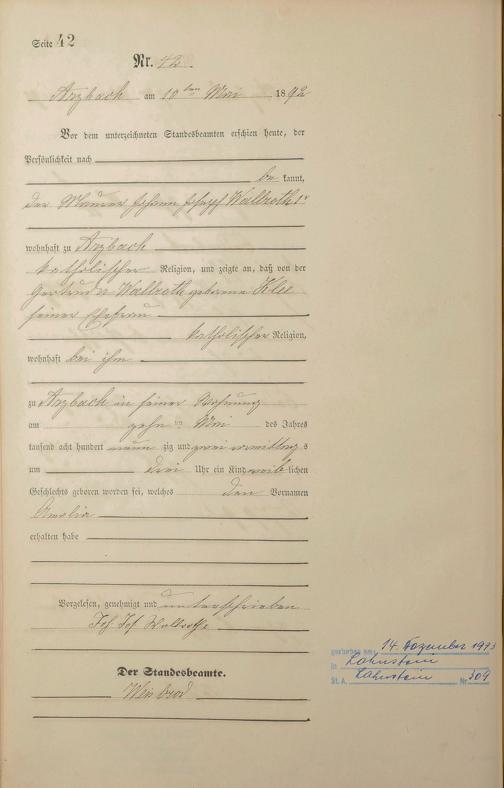 Seite 42
Nr. 42.
Arzbach am 10ten Mai 1892
Vor dem unterzeichneten Standesbeamten erschien heute, der
Persönlichkeit nach
be kannt,
der Maurer Johann Josef Wallroth 1r
wohnhaft zu Arzbach
katholischer Religion, und zeigte an, daß von der
Gertrud Wallroth geborene Klee
seiner Ehefrau
katholischer Religion,
wohnhaft bei ihm
zu Arzbach in seiner Wohnung
am zehn ten Mai des Jahres
tausend acht hundert neun zig und zwei vormittags
um drei Uhr ein Kind weib lichen
Geschlechts geboren worden sei, welches den Vornamen
Amalia
erhalten habe
Vorgelesen, genehmigt und unterschrieben
Joh. Jos. Wallroth
Der Standesbeamte.
gestorben am 14. Dezember 1973
in Lahnstein
St. A. Lahnstein Nr. 309